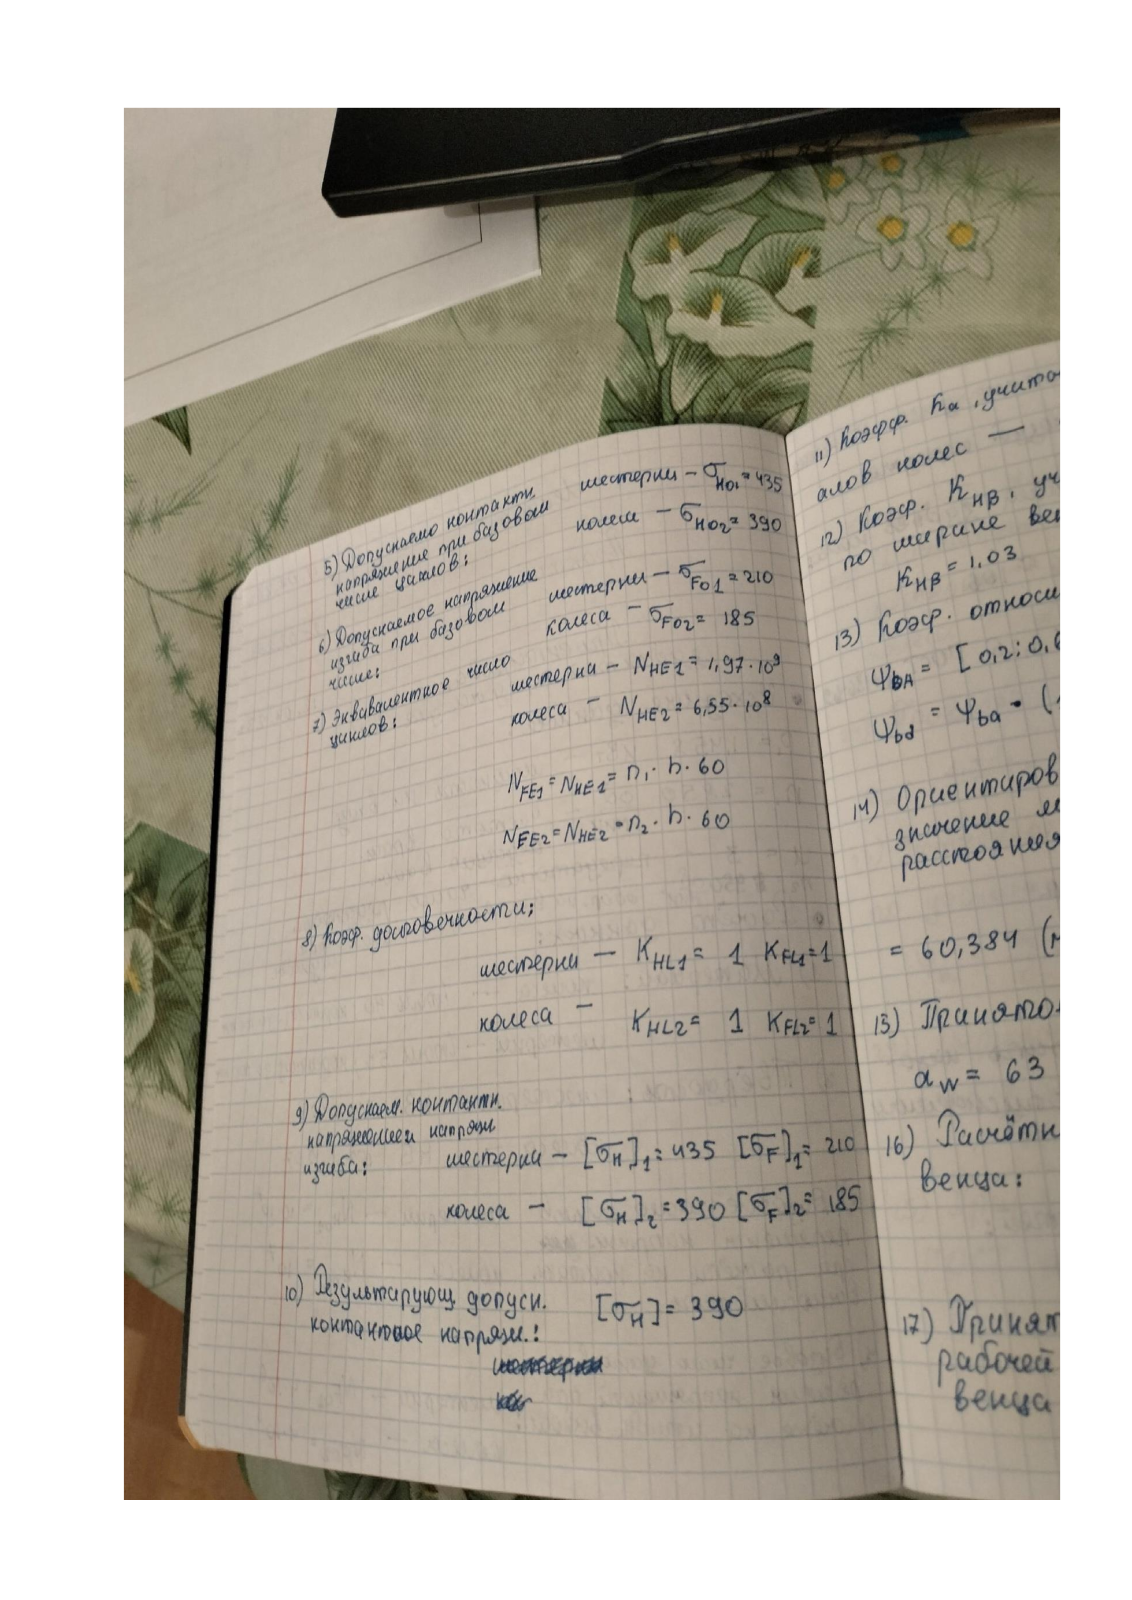 5) Допускаемо контактн.
напряжение при базовом
числе циклов:
шестерни – σHO1 = 435
колеса – σHO2 = 390
6) Допускаемое напряжение
изгиба при базовом
числе:
шестерни – σFO1 = 210
колеса – σFO2 = 185
7) Эквивалентное число
циклов:
шестерни – NHE1 = 1,97·10⁹
колеса – NHE2 = 6,55·10⁸
NFE1 = NHE1 = n1 · h · 60
NFE2 = NHE2 = n2 · h · 60
8) Коэф. долговечности:
шестерни – KHL1 = 1 KFL1 = 1
колеса – KHL2 = 1 KFL2 = 1
9) Допускаем. контактн.
напряжением напряж
изгиба:
шестерни – [σH]1 = 435 [σF]1 = 210
колеса – [σH]2 = 390 [σF]2 = 185
10) Результирующ. допуск.
контактное напряж.: [σH] = 390
11) Коэфф. Ka, учиты
алов колес —
12) Коэф. KHB, уч
по ширине вен
KHB = 1,03
13) Коэф. относи
ψba = [0,2; 0,
ψbd = ψba · (
14) Ориентиров
значение м
расстояния
= 60,384 (м
15) Принято
aw = 63
16) Расчётн
венца:
17) Принят
рабочей
венца